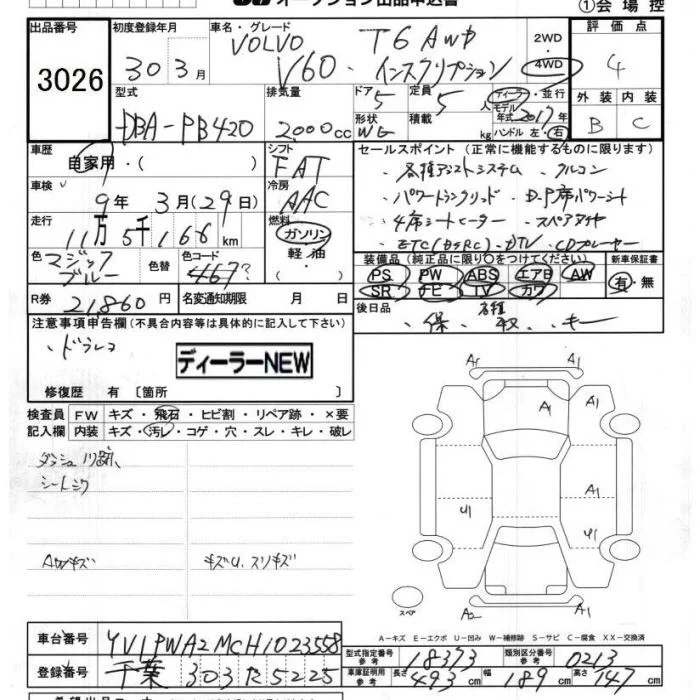 オークション出品申込書
①会場控
出品番号
3026
初度登録年月
30 3月
車名・グレード
VOLVO V60・T6 AWD インスクリプション
2WD
4WD
評価点
4
型式
DBA-PB420
排気量
2000cc
ドア 5
形状 WG
定員 5人
積載 kg
ディーラー・並行
モデル年式 2017年
ハンドル 左・右
外装 内装
B C
車歴
自家用・( )
シフト
FAT
セールスポイント(正常に機能するものに限ります)
・各種アシストシステム ・クルコン
・パワートランクリッド ・D・P席パワーシート
・4席シートヒーター ・スペアタイヤ
・ETC(DSRC)・DTV ・CDプレーヤー
車検
9年 3月(29日)
冷房
AAC
走行
11万5千166km
燃料
ガソリン
軽油
( )
色
マジックブルー
色替
色コード
467?
装備品(純正品に限り○をつけてください)
新車保証書
PS PW ABS エアB AW
SR ナビ TV カワ
有・無
R券 21,860円
名変通知期限 月 日
後日品
・保 ・各種取 ・キー
注意事項申告欄(不具合内容等は具体的に記入して下さい)
・ドラレコ
ディーラーNEW
修復歴 有 [箇所 ]
検査員
記入欄
FW キズ・飛石・ヒビ割・リペア跡・×要
内装 キズ・汚レ・コゲ・穴・スレ・キレ・破レ
シートシワ
AWキズ
キズU、スリキズ
A1
A1
A1
A1
U1
U1
A2
スペア
A-キズ E-エクボ U-凹み W-補修跡 S-サビ C-腐食 XX-交換済
車台番号 YV1PWA2MCH1023558
登録番号 千葉 303 た 5225
型式指定番号 参考 18373
類別区分番号 参考 0213
車庫証明用 参考 長さ 493cm 幅 189cm 高さ 147cm